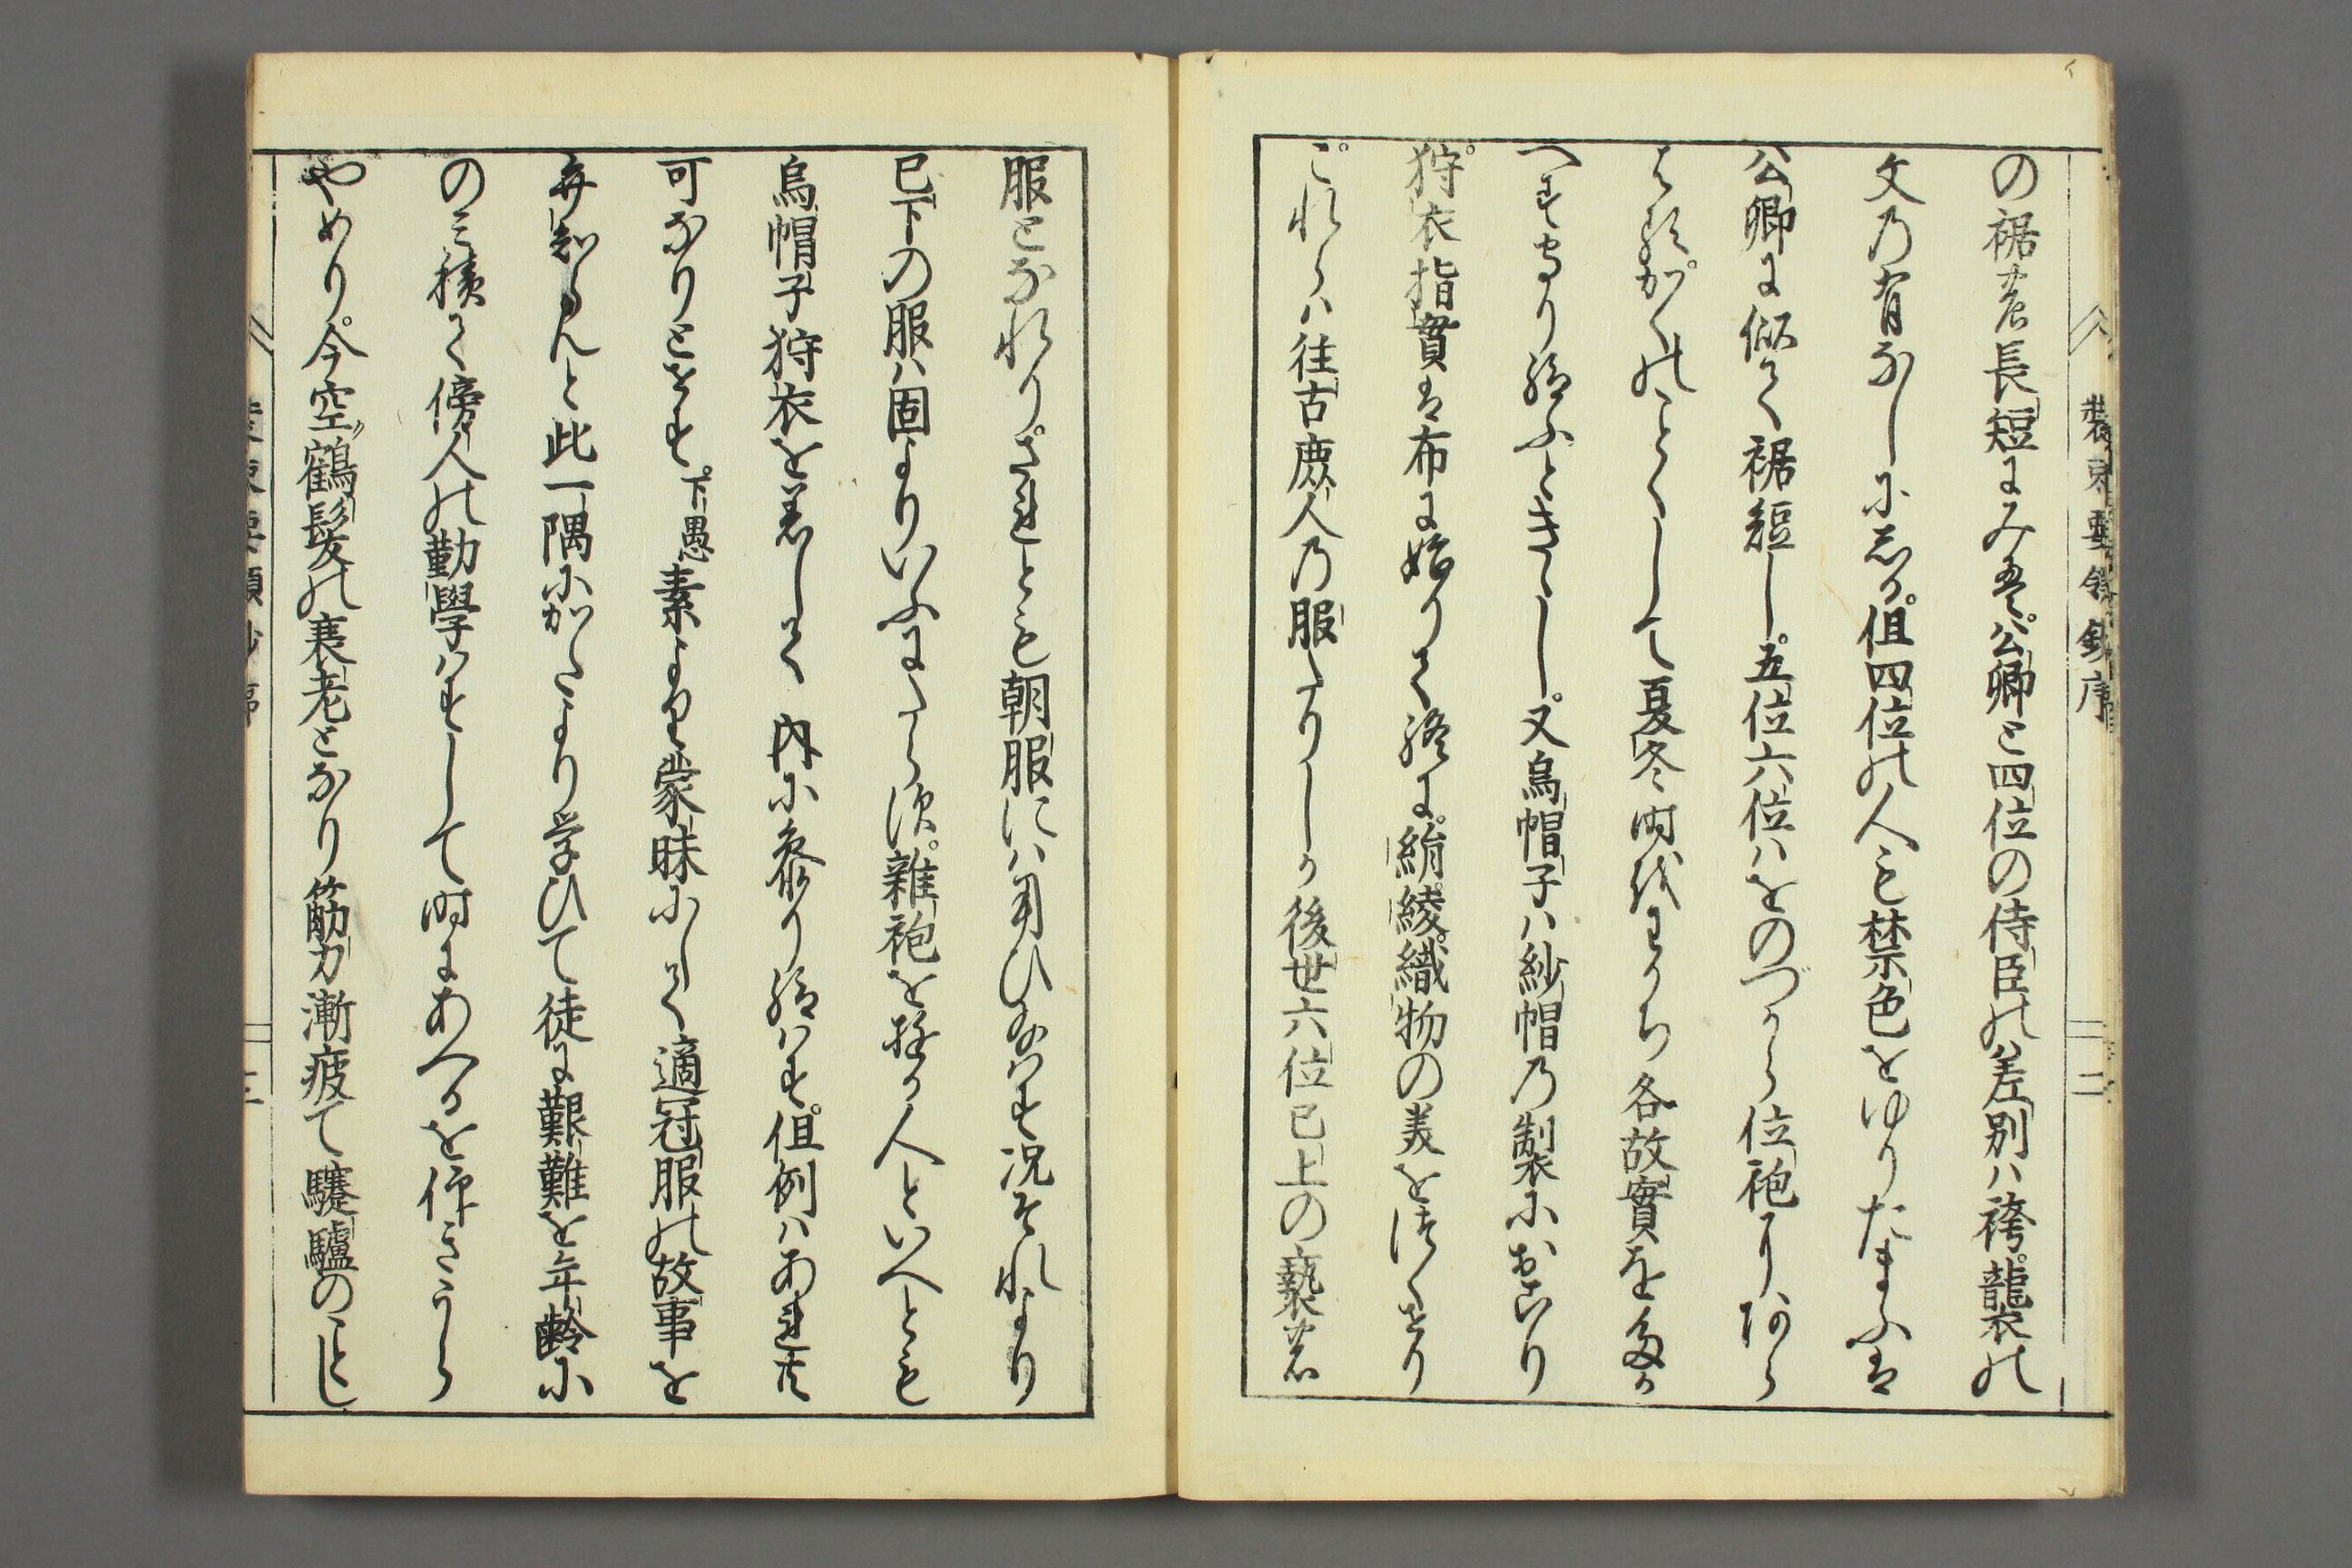 裝束要領鈔序
二
の裾の長短にみえ公卿と四位の侍臣の差別ハ袴襲の
文の有なしにある但四位の人も禁色をゆりたまふは
公卿に似て裾短し五位六位ハをのづから位袍
かくのことくして夏冬時をわかち各故實を
へす守り給ふときし又烏帽子ハ紗帽の製におこり
狩衣指貫は布に始りて終に絹綾織物の美をつくせり
これらハ往古庶人の服たりしか後世六位已上の褻の
服となれりされとも朝服にハ用ひ給はす況それより
已下の服ハ固よりいふにたらす雜袍を聴る人といへとも
烏帽子狩衣を着して内に参り給ハす但例ハあれ共
可なりとせす下愚素より蒙昧にして適冠服の故事を
弁しらんと此一隅にかたより学ひて徒に艱難を年齢に
のミ積て傍人の勤學ハすして時にあへるを
やめり今空鶴髪の衰老となり筋力漸疲て蹇驢のことし
裝束要領鈔序
三